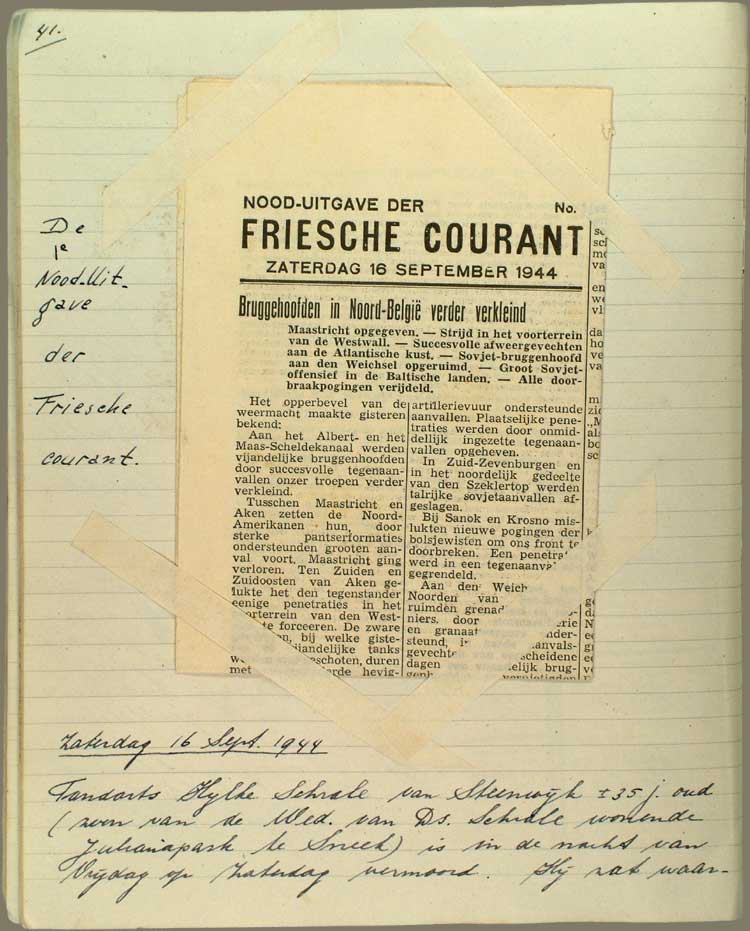 41.
De
1e
Nood-Uit-
gave
der
Friesche
courant.
NOOD-UITGAVE DER No.
FRIESCHE COURANT
ZATERDAG 16 SEPTEMBER 1944
Bruggehoofden in Noord-België verder verkleind
Maastricht opgegeven. — Strijd in het voorterrein
van de Westwall. — Succesvolle afweergevechten
aan de Atlantische kust. — Sovjet-bruggenhoofd
aan den Weichsel opgeruimd. — Groot Sovjet-
offensief in de Baltische landen. — Alle door-
braakpogingen verijdeld.
Het opperbevel van de
weermacht maakte gisteren
bekend:
Aan het Albert- en het
Maas-Scheldekanaal werden
vijandelijke bruggenhoofden
door succesvolle tegenaan-
vallen onzer troepen verder
verkleind.
Tusschen Maastricht en
Aken zetten de Noord-
Amerikanen hun door
sterke pantserformaties
ondersteunden grooten aan-
val voort. Maastricht ging
verloren. Ten Zuiden en
Zuidoosten van Aken ge-
lukte het den tegenstander
eenige penetraties in het
oorterrein van den West-
te forceeren. De zware
en, bij welke giste-
ijandelijke tanks
schoten, duren
met rde hevig-
artillerievuur ondersteunde
aanvallen. Plaatselijke pene-
traties werden door onmid-
dellijk ingezette tegenaan-
vallen opgeheven.
In Zuid-Zevenburgen en
in het noordelijk gedeelte
van den Szeklertop werden
talrijke sovjetaanvallen af-
geslagen.
Bij Sanok en Krosno mis-
lukten nieuwe pogingen der
bolsjewisten om ons front te
doorbreken. Een penetrat
werd in een tegenaanva
gegrendeld.
Aan den Weich
Noorden van
ruimden grenad o-
niers, door erie
en granaat nder-
steund, i anvals-
gevechte scheidene
dagen elijk brug-
genh vernietigden
sc
sch
me
va
en
we
vl
da
ho
ve
va
m
zie
„M
als
bo
sc
Zaterdag 16 Sept. 1944
Tandarts Hylke Schrale van Steenwijk ± 35 j. oud
(zoon van de Wed. van Ds. Schrale wonende
Julianapark te Sneek) is in de nacht van
Vrijdag op Zaterdag vermoord. Hij zat waar-